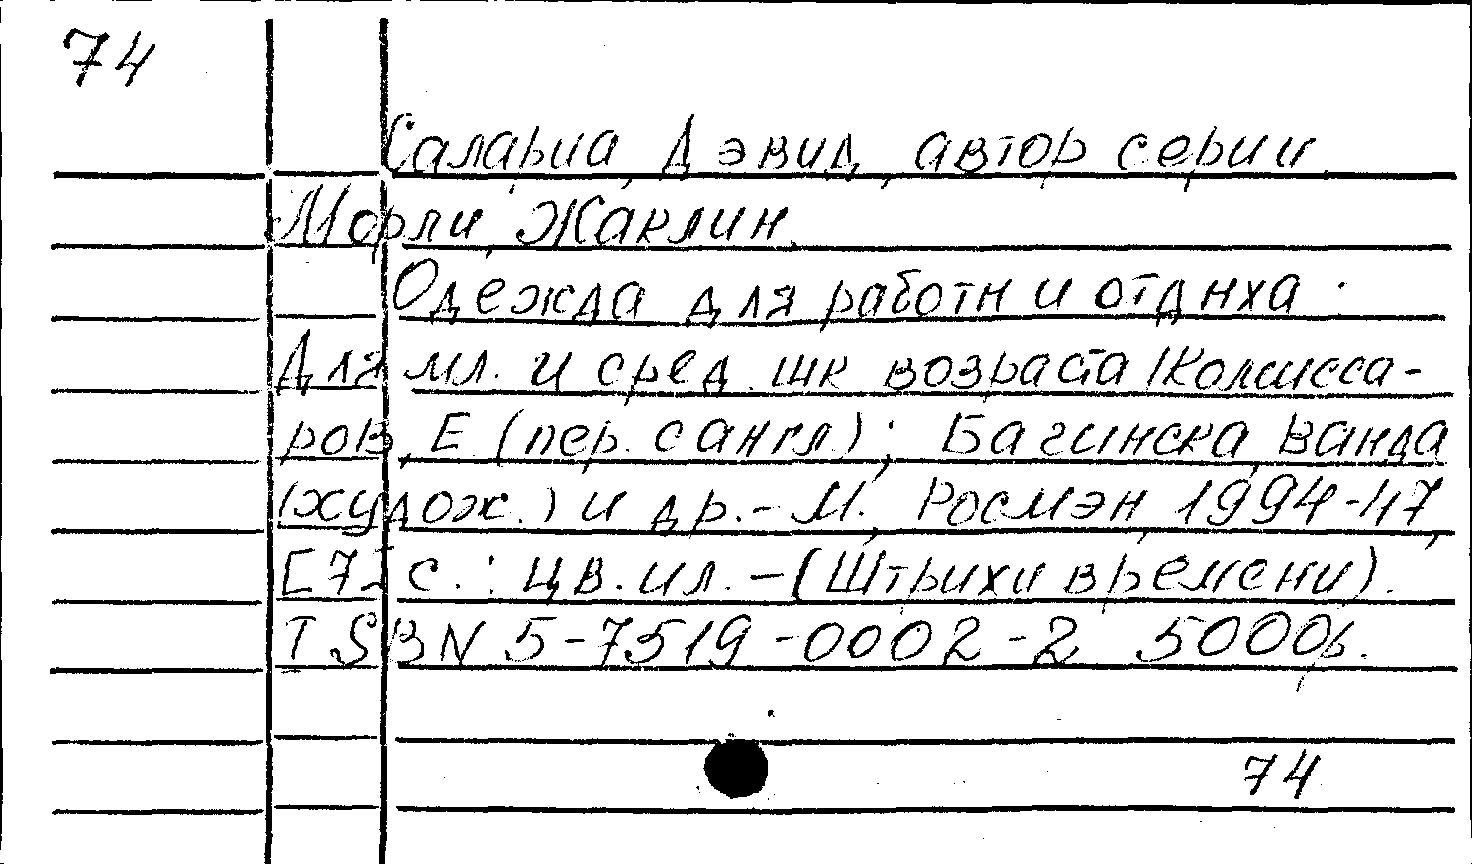 74
Салариа, Дэвид, автор серии
Морли, Жаклин.
Одежда для работы и отдыха :
Для мл. и сред. шк возраста /Комисса-
ров, Е (пер. с англ.); Багинска, Ванда
(худож.) и др. - М.: Росмэн, 1994-47,
[7] с.: цв. ил. - (Штрихи времени).
ISBN 5-7519-0002-2 5000р.
74